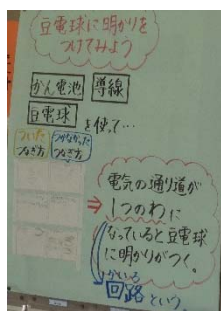 豆電球に明かりを
つけてみよう
かん電池 導線
豆電球 を使って…
ついた つかなかった
つなぎ方 つなぎ方
電気の通り道が
⇒ 1つのわに
なっていると豆電球
に明かりがつく。
回路という